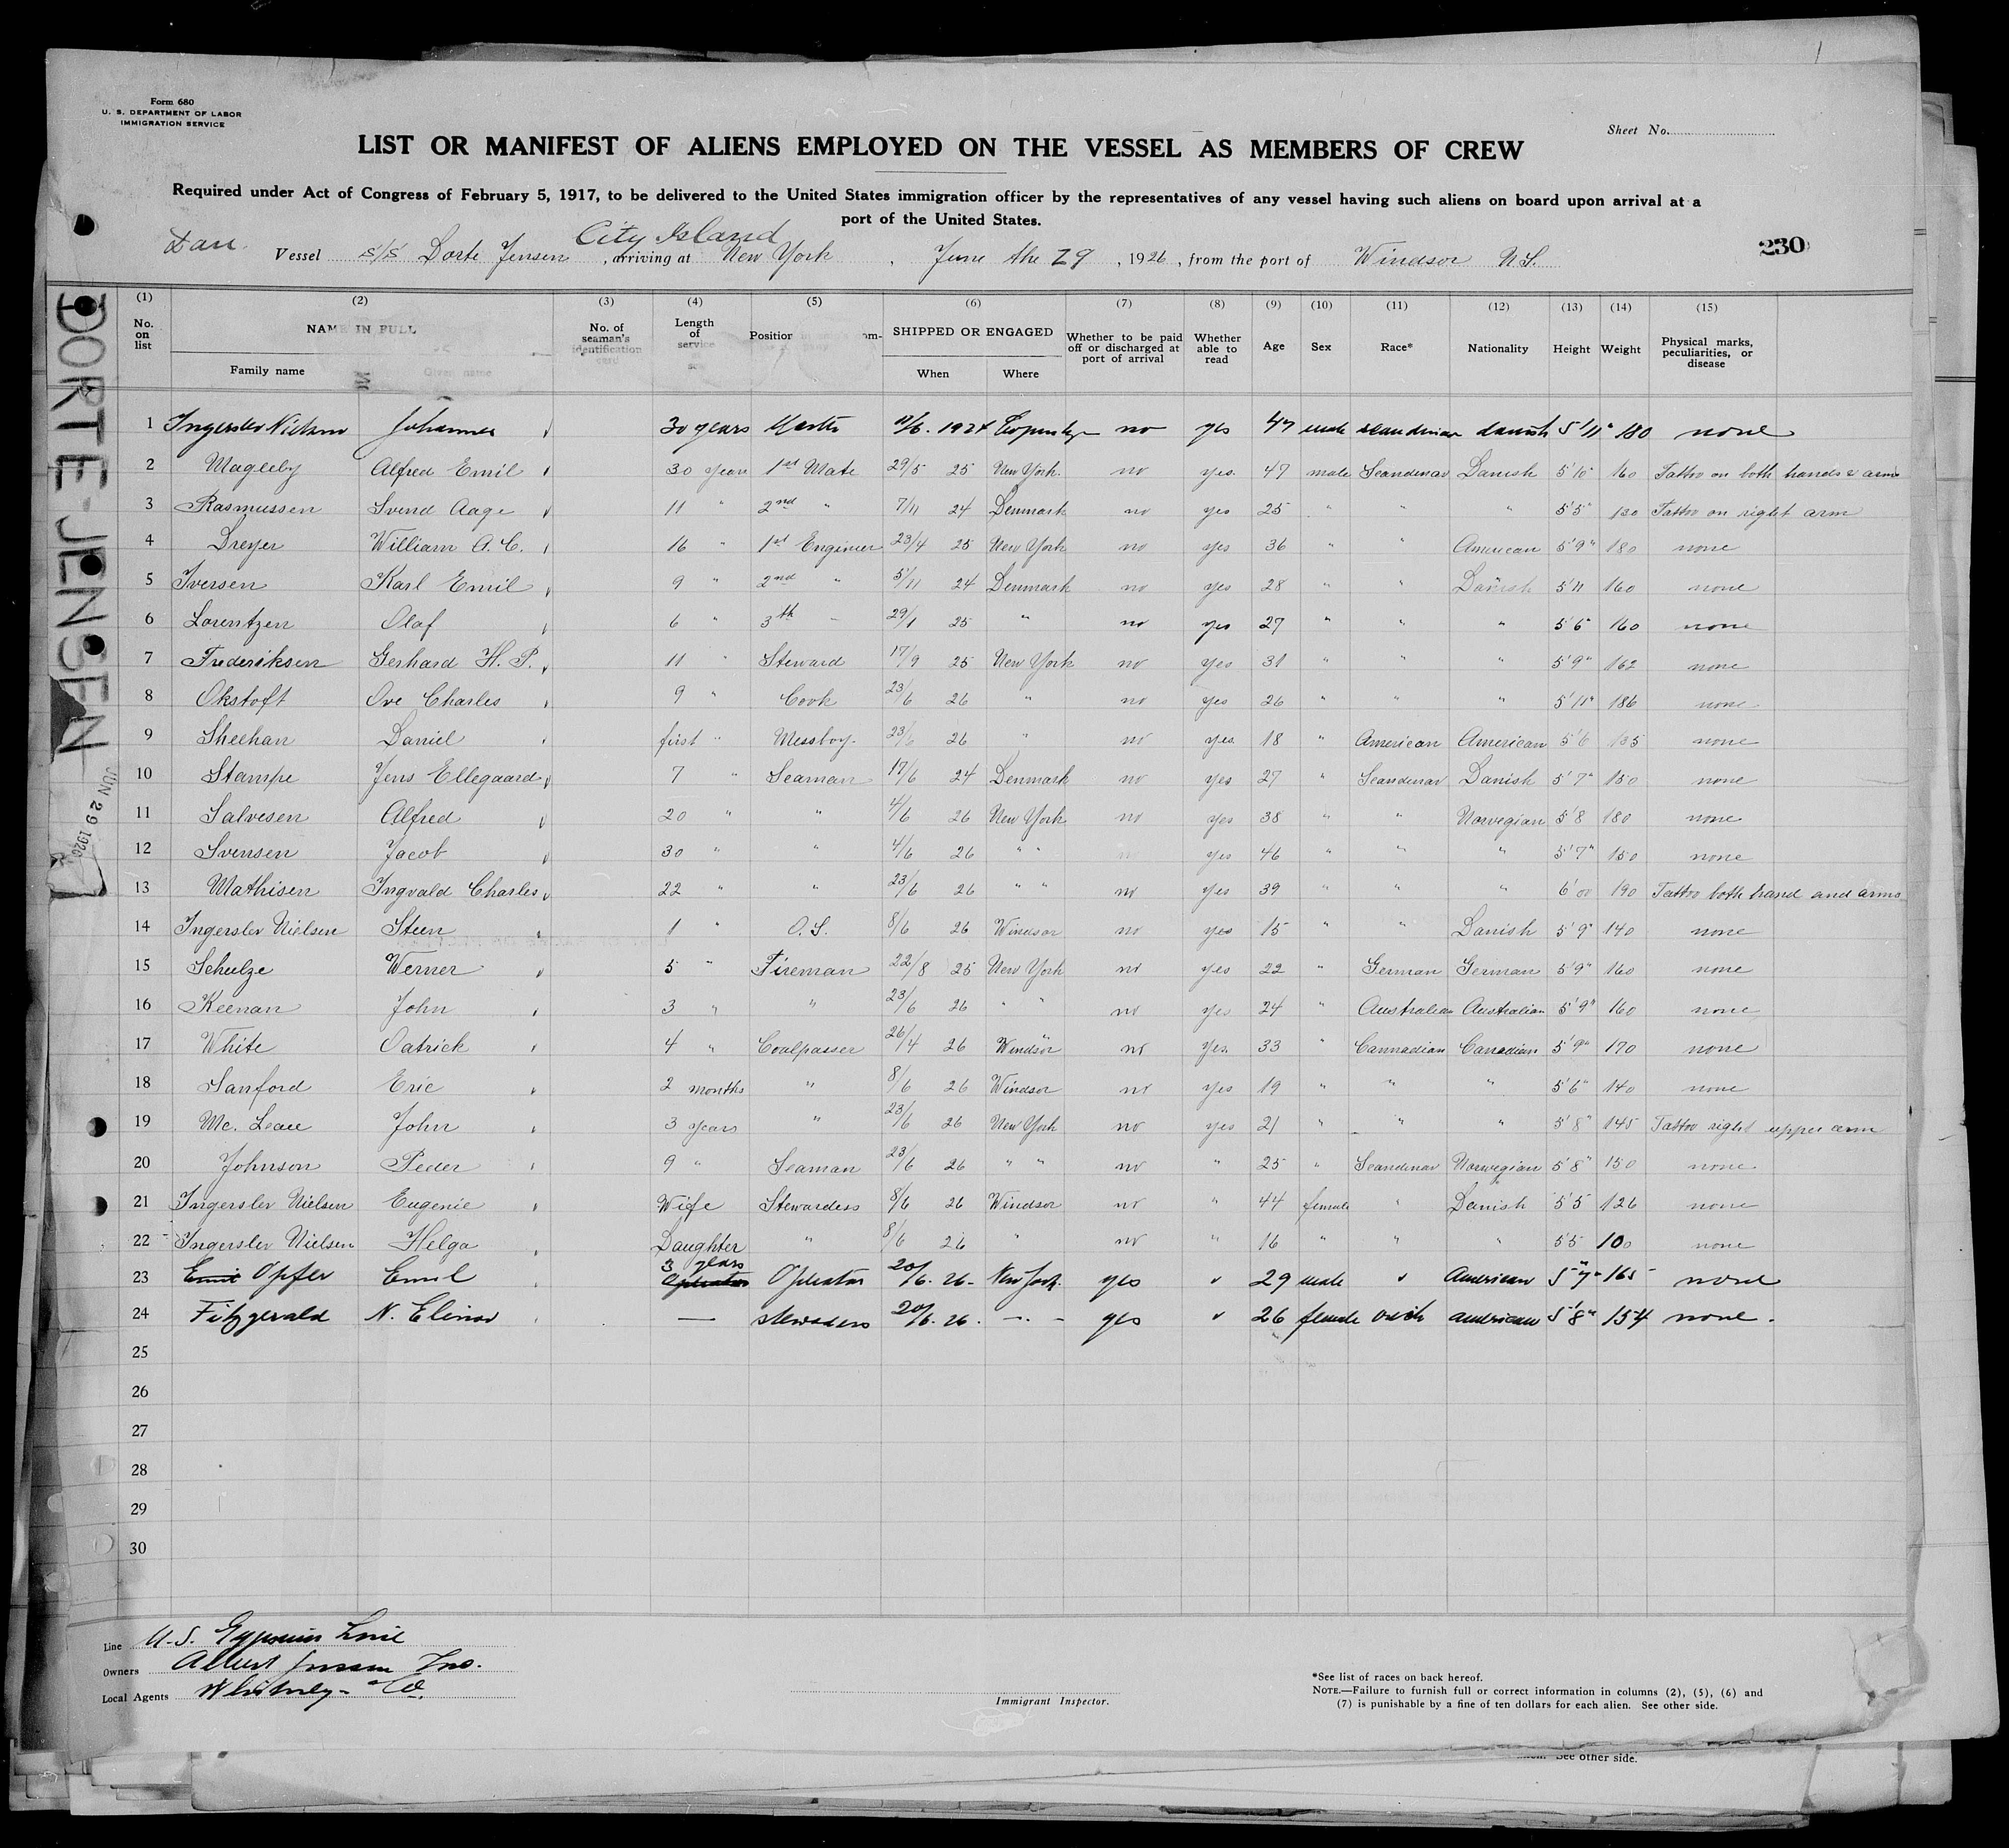 Form 680
U. S. DEPARTMENT OF LABOR
IMMIGRATION SERVICE
Sheet No.
LIST OR MANIFEST OF ALIENS EMPLOYED ON THE VESSEL AS MEMBERS OF CREW
Required under Act of Congress of February 5, 1917, to be delivered to the United States immigration officer by the representatives of any vessel having such aliens on board upon arrival at a
port of the United States.
Dan. City Island 230
Vessel S/S Dorte Jensen, arriving at New York, June the 29, 1926, from the port of Windsor N.S.
DORTE JENSEN
JUN 29 1926
(1) (2) (3) (4) (5) (6) (7) (8) (9) (10) (11) (12) (13) (14) (15)
No. on list NAME IN FULL Family name Given name No. of seaman's identification card Length of service at sea Position SHIPPED OR ENGAGED When Where Whether to be paid off or discharged at port of arrival Whether able to read Age Sex Race* Nationality Height Weight Physical marks, peculiarities, or disease
1 Ingerslev Nielsen Johannes 30 years Master 1924 no yes 47 male scandinav danish 5'11" 180 none
2 Magleby Alfred Emil 30 years 1st Mate 29/5 25 New York. no yes. 47 male Scandinav Danish 5'10" 160 Tattoo on both hands & arms
3 Rasmussen Svend Aage 11 " 2nd " 7/11 24 Denmark no yes 25 " " " 5'5" 130 Tattoo on right arm
4 Dreyer William A. C. 16 " 1st Engineer 23/4 25 New York no yes 36 " " American 5'9" 180 none
5 Iversen Karl Emil 9 " 2nd " 5/11 24 Denmark no yes 28 " " Danish 5'11 160 none
6 Lorentzen Olaf 6 " 3th " 29/1 25 " no yes 27 " " " 5'6" 160 none
7 Frederiksen Gerhard H. P. 11 " Steward 17/9 25 New York no yes 31 " " " 5'9" 162 none
8 Okstoft Ove Charles 9 " Cook 23/6 26 " no yes 26 " " " 5'11" 186 none
9 Sheehan Daniel first " Messboy. 23/6 26 " no yes. 18 " American American 5'6 135 none
10 Stampe Jens Ellegaard 7 " Seaman 17/6 24 Denmark no yes 27 " Scandinav Danish 5'7" 150 none
11 Salvesen Alfred 20 " " 4/6 26 New York no yes 38 " " Norwegian 5'8 180 none
12 Svensen Jacob 30 " " 4/6 26 " " no yes 46 " " " 5'7" 150 none
13 Mathisen Ingvald Charles 22 " " 23/6 26 " " no yes 39 " " " 6'00 190 Tattoo both hand and arms
14 Ingerslev Nielsen Steen 1 " O.S. 8/6 26 Windsor no yes 15 " " Danish 5'9" 140 none
15 Schulze Werner 5 " Fireman 22/8 25 New York no yes 22 " German German 5'9" 160 none
16 Keenan John 3 " " 23/6 26 " " no yes 24 " Australian Australian 5'9" 160 none
17 White Oatrick 4 " Coalpasser 26/4 26 Windsor no yes. 33 " Cannadian Canadian 5'9" 170 none
18 Sanford Eric 2 months " 8/6 26 Windsor no yes 19 " " " 5'6" 140 none
19 Mc. Lean John 3 years " 23/6 26 New York no yes 21 " " " 5'8" 145 Tattoo right upper arm
20 Johnson Peder 9 " Seaman 23/6 26 " " no " 25 " Scandinav Norwegian 5'8" 150 none
21 Ingerslev Nielsen Eugenie Wife Stewardess 8/6 26 Windsor no " 44 female " Danish 5'5 126 none
22 Ingerslev Nielsen Helga Daughter " 8/6 26 " no " 16 " " " 5'5 100 none
23 Emil Opfer Emil 3 years Operator Operator 20/6. 26 - New York. yes " 29 male " American 5'7" 165 - none
24 Fitzgerald N. Elinor — stewardess 20/6. 26. - " - yes " 26 female irish american 5'8" 154 none.
25
26
27
28
29
30
Line U.S. Gypsum Line
Owners Albert Jensen Inc.
Local Agents Whitney - & Co.
Immigrant Inspector.
*See list of races on back hereof.
NOTE.—Failure to furnish full or correct information in columns (2), (5), (6) and
(7) is punishable by a fine of ten dollars for each alien. See other side.
See other side.